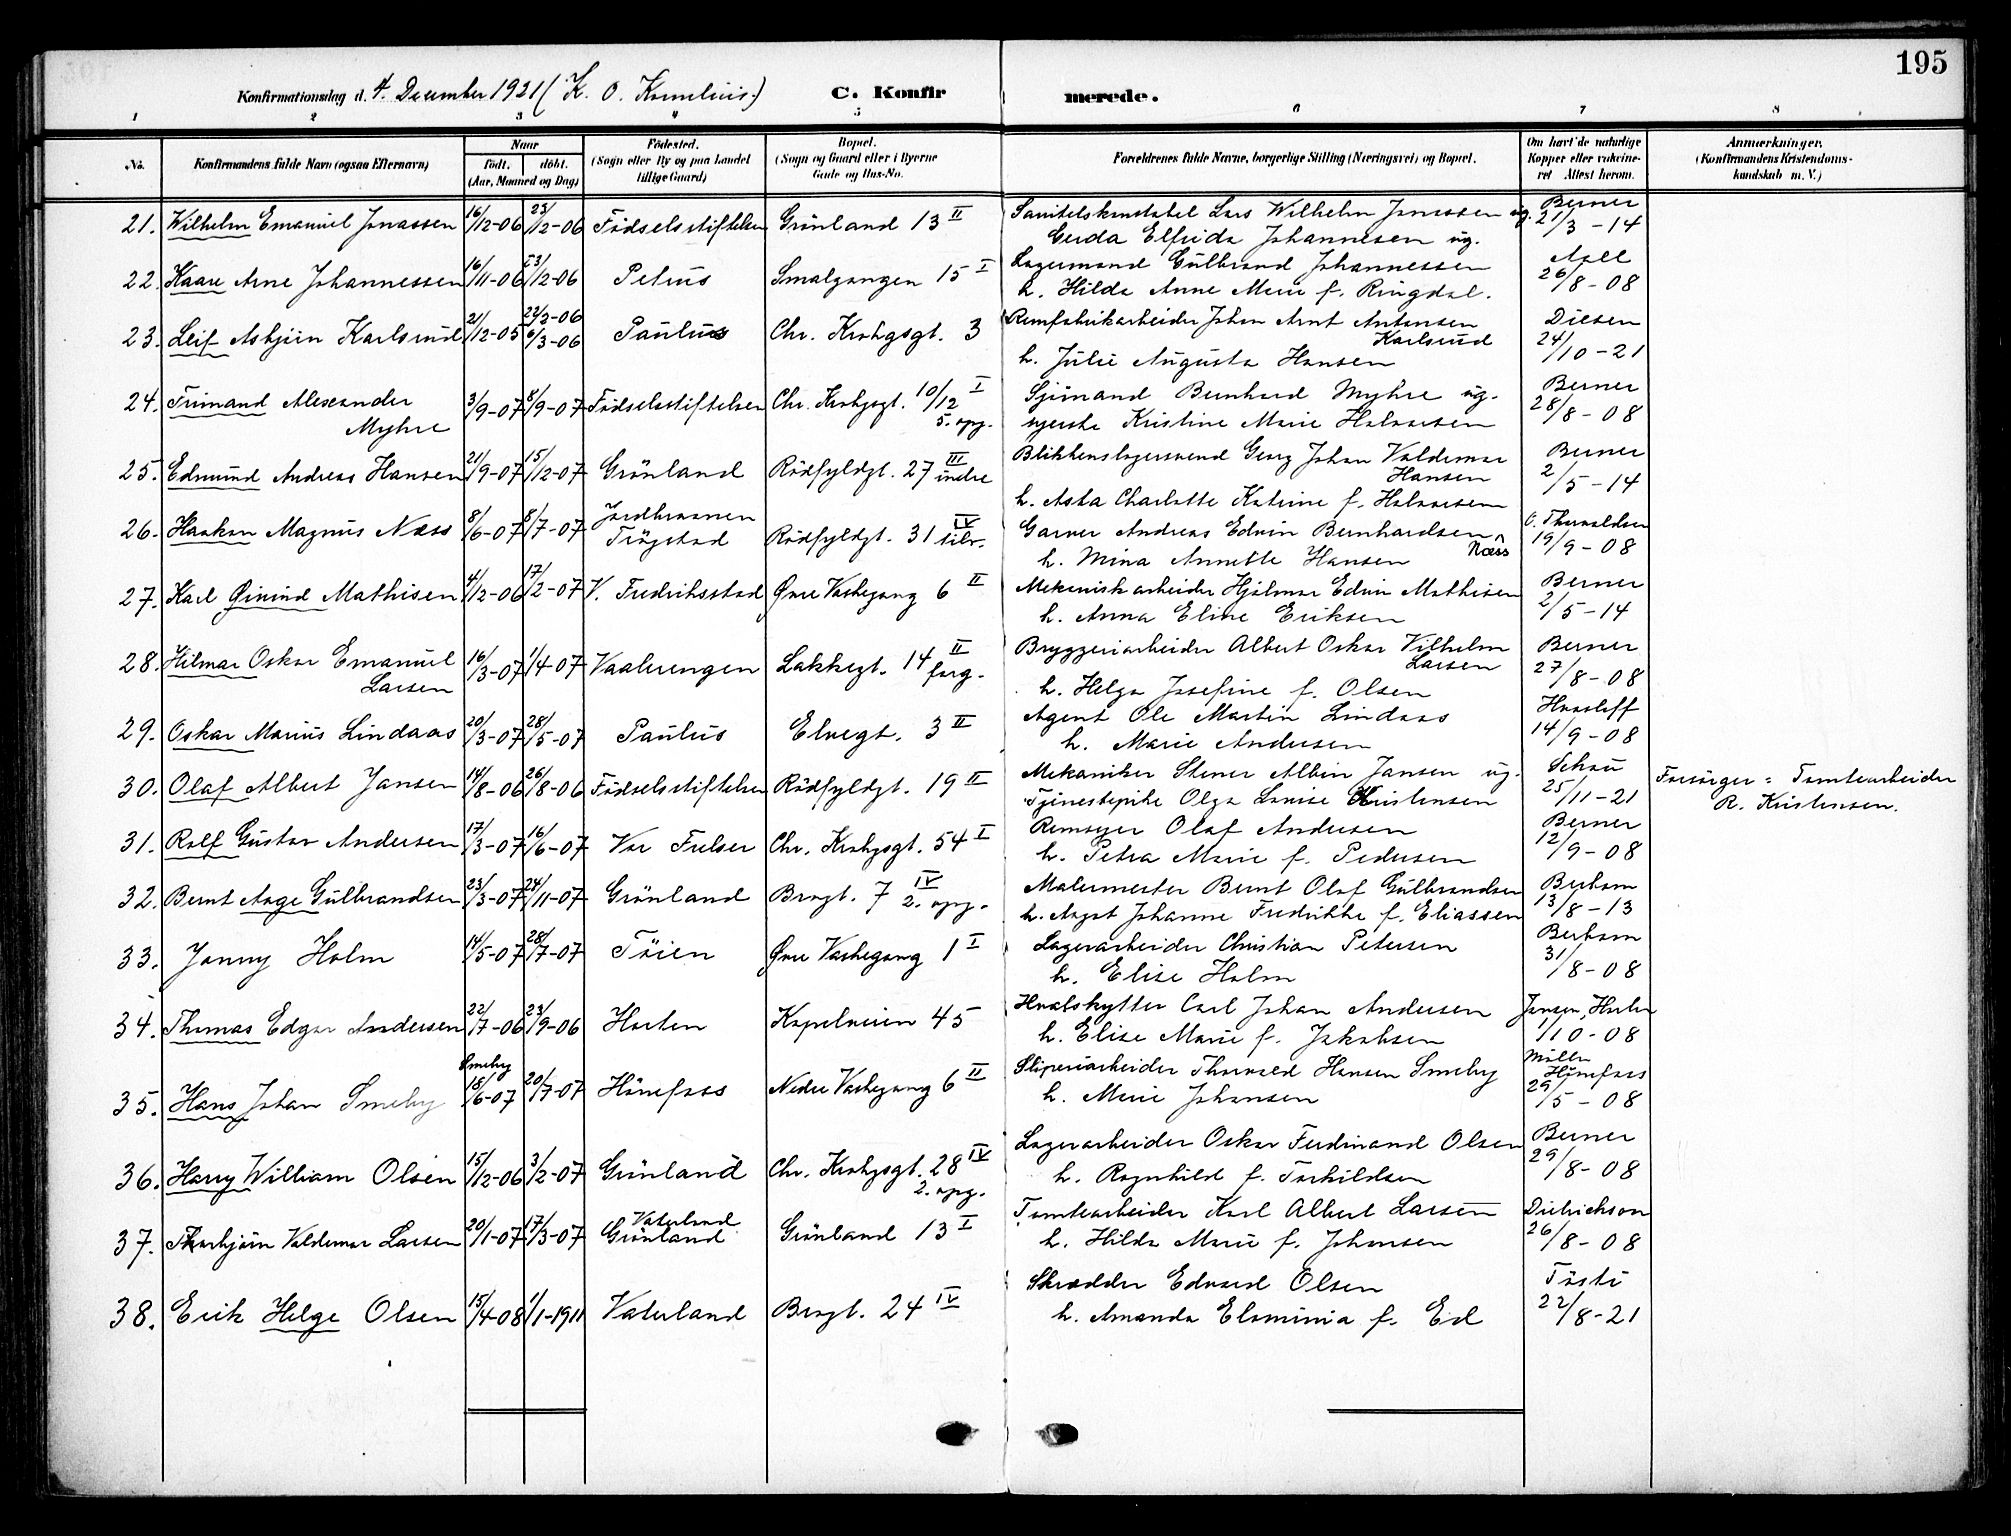 195
Konfirmationsdag d. 4. December 1921 (K. O. Kornelius.) C. Konfirmerede.
1 2 3 4 5 6 7 8
No. Konfirmandens fulde Navn (ogsaa Efternavn) Naar født. døbt. (Aar, Maaned og Dag) Fødested. (Sogn eller By og paa Landet tillige Gaard) Bopæl. (Sogn og Gaard eller i Byerne Gade og Hus-No. Forældrenes fulde Navne, borgerlige Stilling (Næringsvei) og Bopæl. Om havt de naturlige Kopper eller vakcineret Attest herom. Anmærkninger. (Konfirmandens Kristendomskundskab m. V.)
21. Wilhelm Emanuel Jonassen 16/12-06 23/12-06 Födselsstiftelsen Grönland 13 II Sanitetskonstabel Lars Wilhelm Jonassen ug. Berner
Gerda Elfrida Johannesen ug. 21/3-14
22. Kaare Arne Johannessen 16/11-06 23/12-06 Petrus Smalgangen 15 I Lagermand Gulbrand Johannessen Aall
h. Hilda Anne Marie f. Ringdal. 26/8-08
23. Leif Asbjörn Karlsrud 2/12-05 22/2-06 6/3-06 Paulus Chr. Krohgsgt. 3 Remfabrikarbeider Johan Arnt Antonsen Karlsrud Diesen
h. Julie Augusta Hansen 24/10-21
24. Trimand Alexander 3/9-07 8/9-07 Födselsstiftelsen Chr. Krohgsgt. 10/12 I Sjömand Bernhard Myhre ug. Berner
Myhre 5. opg. syerske Kristine Marie Halvorsen 28/8-08
25. Edmund Andreas Hansen 21/9-07 15/12-07 Grönland Rödfyldgt. 27 III indre Blikkenslagersvend Georg Johan Valdemar Hansen Berner
h. Asta Charlotte Katrine f. Halvorsen 2/5-14
26. Haakon Magnus Næss 8/6-07 8/7-07 Trögstad Rödfyldgt. 31 IV Garver Andreas Edvin Bernhardsen Næss O. Thorvaldsen
h. Mina Annette Hansen 19/9-08
27. Karl Øivind Mathisen 4/12-06 17/2-07 V. Fredriksstad Øvre Vaskegang 6 II Mekanisk arbeider Hjalmar Edvin Mathisen Berner
h. Anna Eline Eriksen 2/5-14
28. Hilmar Oskar Emanuel 16/3-07 1/4-07 Vaalerengen Lakkegt. 14 II forg. Bryggeriarbeider Albert Oskar Vilhelm Larsen Berner
Larsen h. Helga Josefine f. Olsen 27/8-08
29. Oskar Marius Lindaas 20/3-07 28/5-07 Paulus Elvegt. 3 II Agent Ole Martin Lindaas
h. Marie Andersen 14/9-08
30. Olaf Albert Jansen 14/8-06 26/8-06 Födselsstiftelsen Rödfyldgt. 19 II Mekaniker Stener Albin Jansen ug. Schou Forsörger = Tomtearbeider
Tjenestepike Olga Louise Kristensen 25/11-21 R. Kristensen.
31. Rolf Gustav Andersen 17/3-07 16/6-07 Vor Frelser Chr. Krohgsgt. 54 I Remsyer Olaf Andersen Berner
h. Petra Marie f. Pedersen 12/9-08
32. Bernt Aage Gulbrandsen 23/3-07 24/11-07 Grönland Brogt. 7 IV 2. opg. Malermester Bernt Olaf Gulbrandsen Berham
h. Aagot Johanne Fredrikke f. Eliassen 13/8-13
33. Jonny Holm 14/5-07 28/7-07 Töien Øvre Vaskegang 1 I Lagerarbeider Christian Petersen Berham
h. Elise Holm 31/8-08
34. Thomas Edgar Andersen 22/7-06 23/9-06 Horten Kapelveien 45 Hvalskytter Carl Johan Andersen Jansen, Horten
h. Elise Marie f. Jakobsen 1/10-08
35. Hans Johan Smeby Smeby 18/6-07 20/7-07 Hönefoss Nedre Vaskegang 6 II Sliperiarbeider Thorvald Hansen Smeby Möller Hönefoss
h. Marie Johansen 29/5-08
36. Harry William Olsen 15/12-06 3/2-07 Grönland Chr. Krohgsgt. 28 IV 2. opg. Lagerarbeider Oskar Ferdinand Olsen Berner
h. Ragnhild f. Torkildsen 29/8-08
37. Thorbjörn Valdemar Larsen 20/1-07 17/3-07 Vaterland Grönland Grönland 13 I Tomtearbeider Karl Albert Larsen Dietrichson
h. Hilda Marie f. Johansen 26/8-08
38. Erik Helge Olsen 15/4-08 1/1-1911 Vaterland Brogt. 24 IV Skrædder Edvard Olsen
h. Amanda Elominia f. Ed 22/8-21